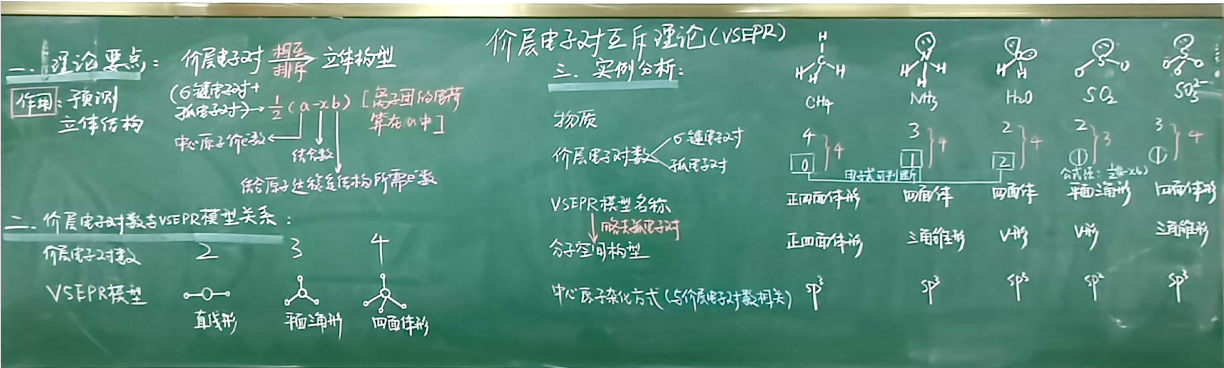 价层电子对互斥理论(VSEPR)
一、理论要点:
价层电子对 相互排斥 立体构型
作用:预测
立体结构
(σ键电子对+
孤电子对)→½(a-xb)[离子团的电荷
算在a中]
中心原子价e⁻数
结合数
结合原子达稳定结构所需e⁻数
二、价层电子对数与VSEPR模型关系:
价层电子对数 2 3 4
VSEPR模型
直线形 平面三角形 四面体形
三、实例分析:
H H H H H H
物质 CH4 NH3 H2O SO2 SO3²⁻
价层电子对数
σ键电子对 4 3 2 2 3
4 4 4 3 4
孤电子对 0 1 2 1 1
电子式可判断
VSEPR模型名称 正四面体形 四面体 四面体 平面三角形 四面体形
略去孤电子对
分子空间构型 正四面体形 三角锥形 V形 V形 三角锥形
中心原子杂化方式(与价层电子对数相关) sp³ sp³ sp³ sp² sp³